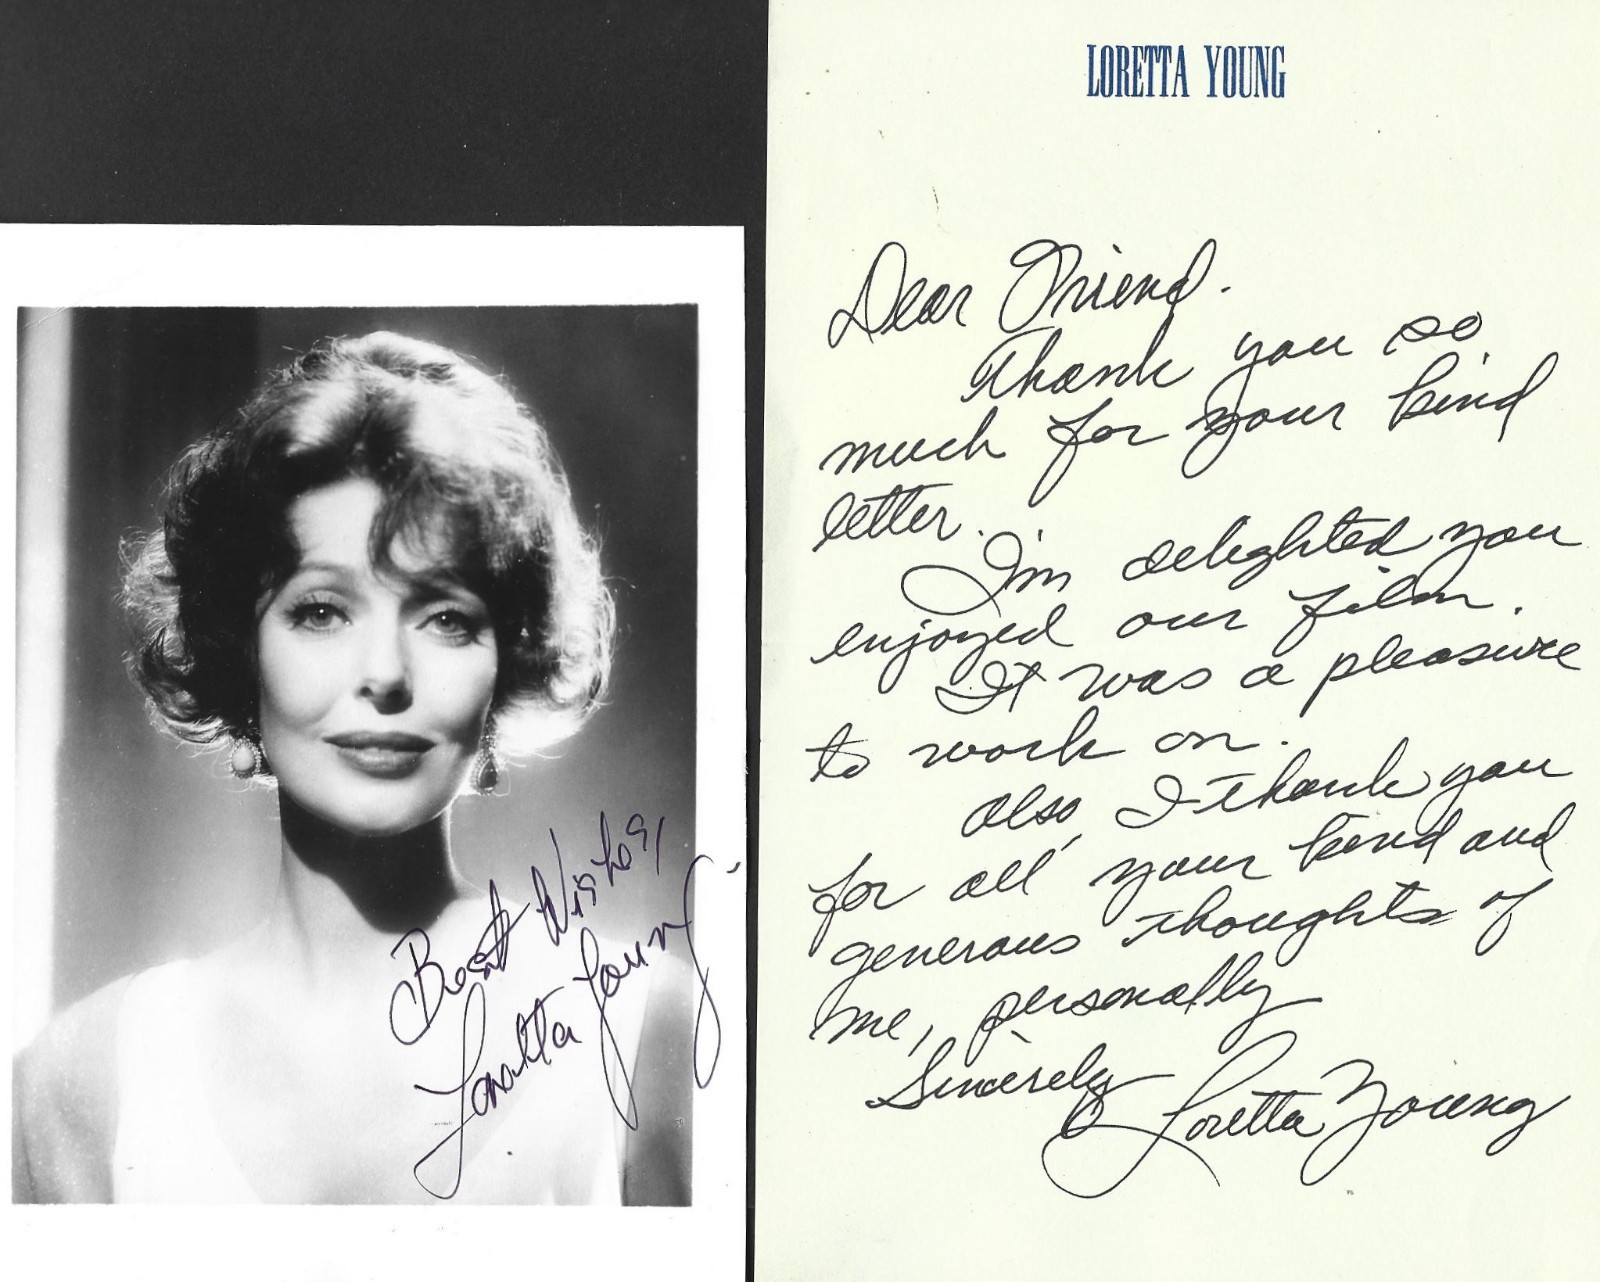 Best Wishes,
Loretta Young
LORETTA YOUNG
Dear Friend.
Thank you so
much for your kind
letter.
I'm delighted you
enjoyed our film.
It was a pleasure
to work on.
Also, I thank you
for all your kind and
generous thoughts of
me, personally
Sincerely
Loretta Young